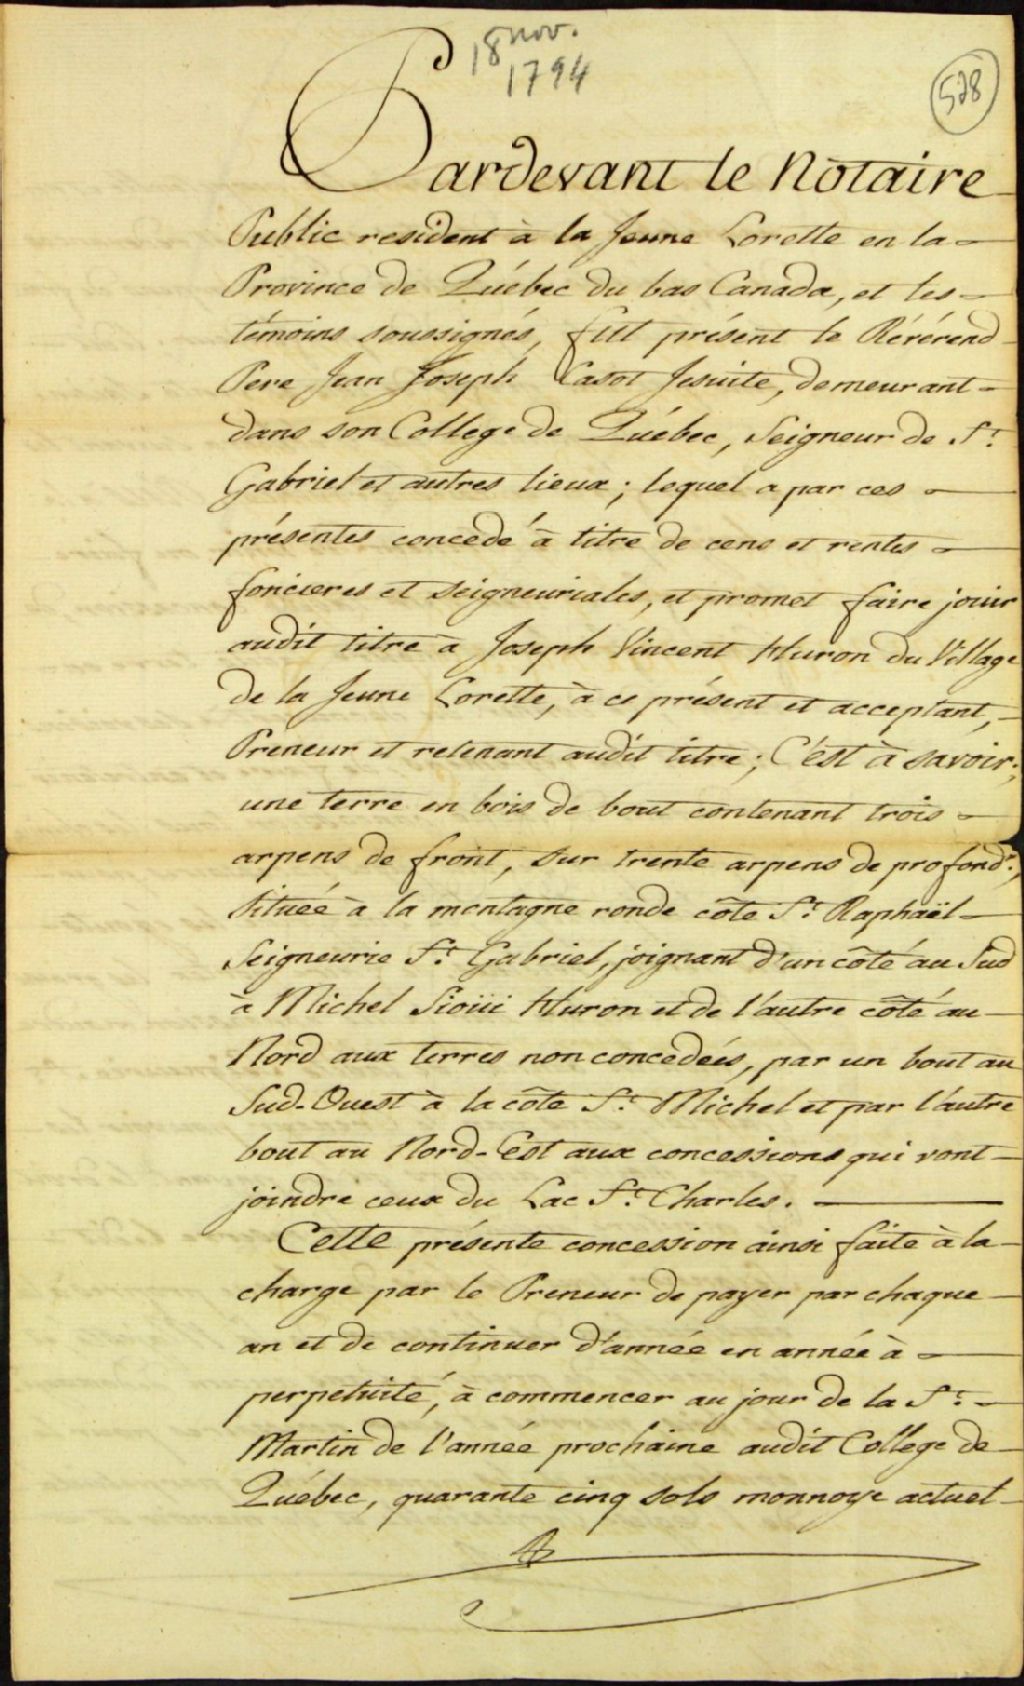 18 nov.
1794
528
Pardevant le Notaire
Public resident à la Jeune Lorette en la
Province de Québec du bas Canada, et les
témoins soussignés, fut présent le Révérend
Pere Jean Joseph Casot Jesuite, demeurant
dans son College de Québec, Seigneur de St.
Gabriel et autres lieux; lequel a par ces
présentes concedé à titre de cens et rentes
foncieres et seigneuriales, et promet faire jouir
audit titre à Joseph Vincent Huron du Village
de la Jeune Lorette, à ce présent et acceptant,
Preneur et retenant audit titre; C'est à savoir;
une terre en bois de bout contenant trois
arpens de front, sur trente arpens de profondr.,
située à la montagne ronde côte St. Raphaël
Seigneurie St. Gabriel, joignant d'un côté au Sud
à Michel Sioüi Huron et de l'autre côté au
Nord aux terres non concedées, par un bout au
Sud-Ouest à la côte St. Michel et par l'autre
bout au Nord-Est aux concessions qui vont
joindre ceux du Lac St. Charles.
Cette présente concession ainsi faite à la
charge par le Preneur de payer par chaque
an et de continuer d'année en année à
perpetuité, à commencer au jour de la St.
Martin de l'année prochaine audit College de
Québec, quarante cinq sols monnoye actuel